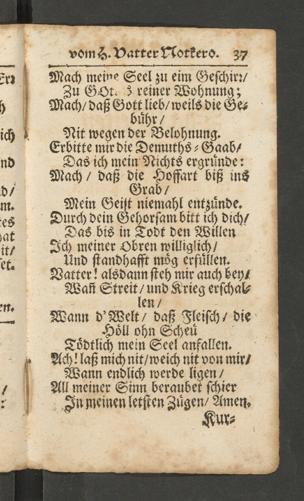 vom H. Vatter Notkero. 37
Mach meine Seel zu eim Geschirr/
Zu GOttes reiner Wohnung;
Mach/ daß Gott lieb/ weils die Ge-
bühr/
Nit wegen der Belohnung.
Erbitte mir die Demuths-Gaab/
Das ich mein Nichts ergründe:
Mach/ daß die Hoffart biß ins
Grab/
Mein Geist niemahl entzünde.
Durch dein Gehorsam bitt ich dich/
Das bis in Todt den Willen
Ich meiner Obren williglich/
Und standhafft mög erfüllen.
Vatter! alsdann steh mir auch bey/
Wañ Streit/ und Krieg erschal-
len/
Wann d'Welt/ daß Fleisch/ die
Höll ohn Scheü
Tödtlich mein Seel anfallen.
Ach! laß mich nit/ weich nit von mir/
Wann endlich werde ligen/
All meiner Sinn beraubet schier
In meinen letsten Zügen/ Amen.
Kur-